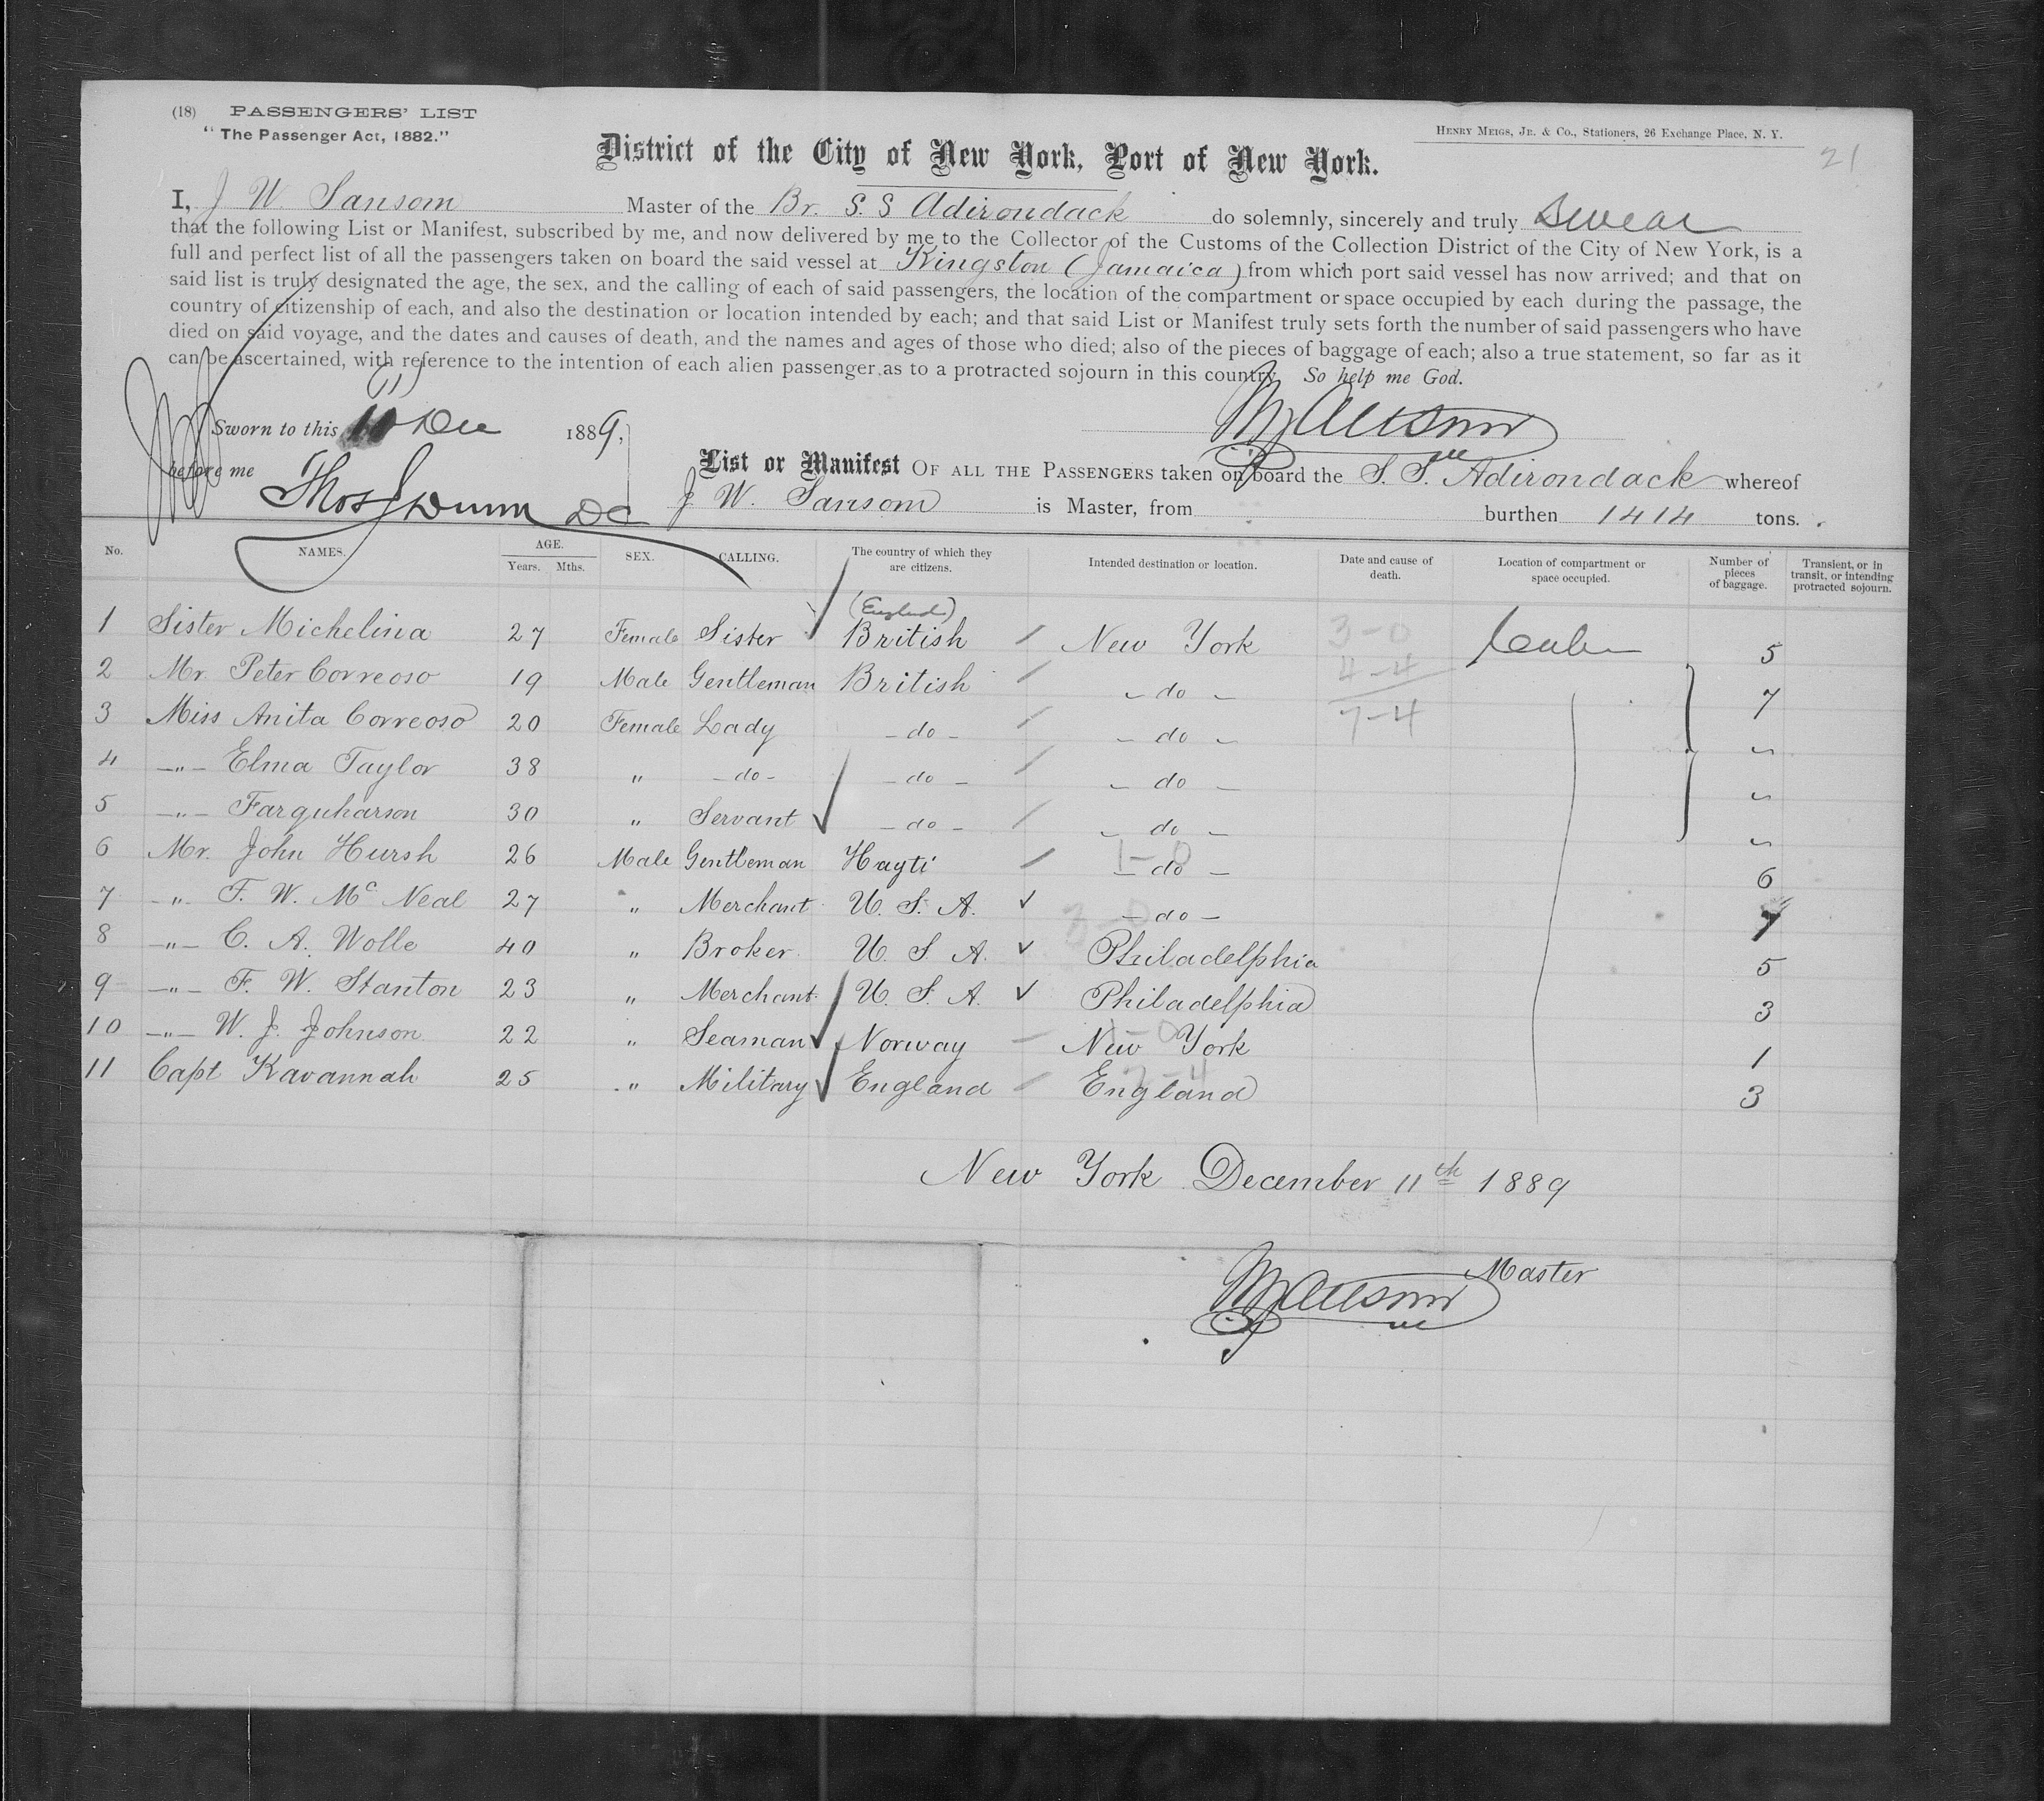 (18) PASSENGERS' LIST
"The Passenger Act, 1882."
HENRY MEIGS, JR. & CO., Stationers, 26 Exchange Place, N. Y.
21
District of the City of New York, Port of New York.
I, J W Sansom Master of the Br. S. S Adirondack do solemnly, sincerely and truly swear
that the following List or Manifest, subscribed by me, and now delivered by me to the Collector of the Customs of the Collection District of the City of New York, is a
full and perfect list of all the passengers taken on board the said vessel at Kingston (Jamaica) from which port said vessel has now arrived; and that on
said list is truly designated the age, the sex, and the calling of each of said passengers, the location of the compartment or space occupied by each during the passage, the
country of citizenship of each, and also the destination or location intended by each; and that said List or Manifest truly sets forth the number of said passengers who have
died on said voyage, and the dates and causes of death, and the names and ages of those who died; also of the pieces of baggage of each; also a true statement, so far as it
can be ascertained, with reference to the intention of each alien passenger, as to a protracted sojourn in this country. So help me God.
JWSansom
Sworn to this 11 Dec 1889,
before me Thos J Dunn DC
List or Manifest OF ALL THE PASSENGERS taken on board the S. S. Adirondack whereof
J W. Sansom is Master, from burthen 1414 tons.
No. NAMES. AGE. Years. Mths. SEX. CALLING. The country of which they are citizens. Intended destination or location. Date and cause of death. Location of compartment or space occupied. Number of pieces of baggage. Transient, or in transit, or intending protracted sojourn.
1 Sister Michelina 27 Female Sister (England) British New York 3-0 Cabin 5
2 Mr. Peter Correoso 19 Male Gentleman British - do - 4-4 7
3 Miss Anita Correoso 20 Female Lady - do - - do - 7-4 "
4 -"- Elma Taylor 38 " - do - - do - - do - "
5 -"- Farquharson 30 " Servant - do - - do - "
6 Mr. John Hursh 26 Male Gentleman Hayti 1-0 - do - 6
7 -"- F. W. Mc Neal 27 " Merchant U. S. A. - do - 7
8 -"- C. A. Wolle 40 " Broker U. S. A. 3-0 Philadelphia 5
9 -"- F. W. Stanton 23 " Merchant U. S. A. Philadelphia 3
10 -"- W. J. Johnson 22 " Seaman Norway New York 1
11 Capt Kavannah 25 " Military England England 3
New York December 11th 1889
JWSansom Master